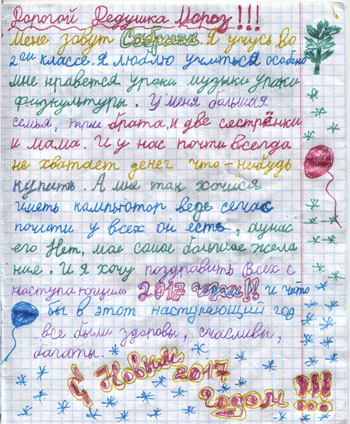 Дорогой Дедушка Мороз!!!
Мене завут Сабрина. Я учусь во
2ом классе. Я люблю учиться особно
мне нравется уроки музыки уроки
физкультуры. У меня большая
семья, три брата, и две сестрёнки
и мама. И у нас почти всегда
не хватает денег что-нибудь
купить. А мне так хочится
иметь кампьютор веде сечас
почити у всех он есть, а у нас
его Нет, мае самое большае жела
ние. И я хочу поздравить Всех с
наступающим 2017 годом!! и что
бы в этот наступающий год
все были здоровы, счасливы,
багаты.
С Новым
2017
Годом!!!